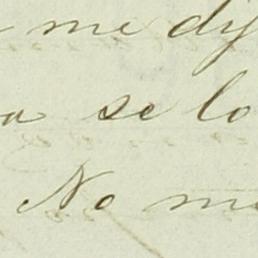 me dij
a se lo
No me